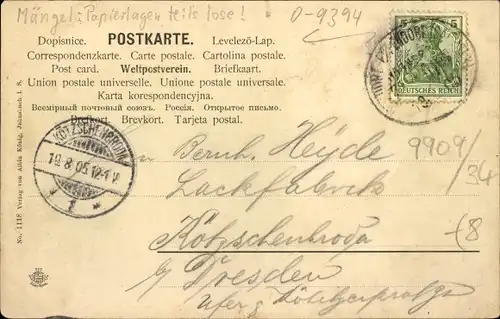 Mängel: Papierlagen teils lose!
0-9394
Dopisnice. POSTKARTE. Levelező-Lap.
Correspondenzkarte. Carte postale. Cartolina postale.
Post card. Weltpostverein. Briefkaart.
Union postale universelle. Unione postale universale.
Karta korespondencyjna.
Всемірный почтовый союзъ. Россія. Открытое письмо.
Brefkort. Brevkort. Tarjeta postal.
5 5
DEUTSCHES REICH
KÖTZSCHENBRODA
19.8.05.12-1 V.
* 1 *
Bernh. Heyde
Lackfabrik
Kötzschenbroda
b/ Dresden
9909/
34
(8
No. 1118 Verlag von Albin König, Johnsbach i. S.